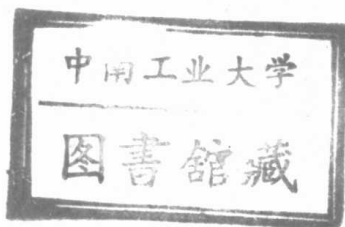 中南工业大学
图書舘藏